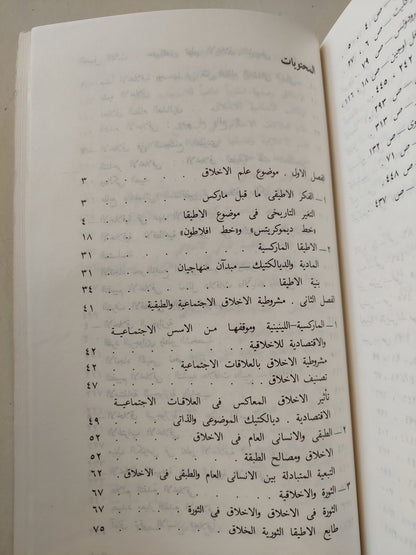 المحتويات
الفصل الاول . موضوع علم الاخلاق . . . . ٣
١ – الفكر الاطيقى ما قبل ماركس . . . . ٣
التغير التاريخى فى موضوع الاطيقا . . . ٤
«خط ديموكريتس» و«خط افلاطون» . . . ١٨
٢ – الاطيقا الماركسية . . . . . ٣١
المادية والديالكتيك – مبدآن منهاجيان . . ٣١
بنية الاطيقا . . . . . . ٣٤
لفصل الثانى . مشروطية الاخلاق الاجتماعية والطبقية . ٤١
١ – الماركسية–اللينينية وموقفها من الاسس الاجتماعية
والاقتصادية للاخلاقية . . . . ٤٢
مشروطية الاخلاق بالعلاقات الاجتماعية . . ٤٢
تصنيف الاخلاق . . . . . ٤٧
تأثير الاخلاق المعاكس فى العلاقات الاجتماعية
الاقتصادية . ديالكتيك الموضوعى والذاتى . ٤٩
٢ – الطبقى والانسانى العام فى الاخلاق . . ٥٢
الاخلاق ومصالح الطبقة . . . . ٥٢
التبعية المتبادلة بين الانسانى العام والطبقى فى الاخلاق . ٦٢
٣ – الثورة والاخلاقية . . . . . ٦٧
الثورة فى الاخلاق والاخلاق فى الثورة . . ٦٧
طابع الاطيقا الثورية الخلاق . . . ٧٥
ص ٥ ،
ص ٦ ، ٢٧٠
ص ١٨ ، ١١٦ ،
٢٤٢ ،
ص ٢٩٣ .
ص ٣١٣
ص ٤٤٨
ص ٤٣٧